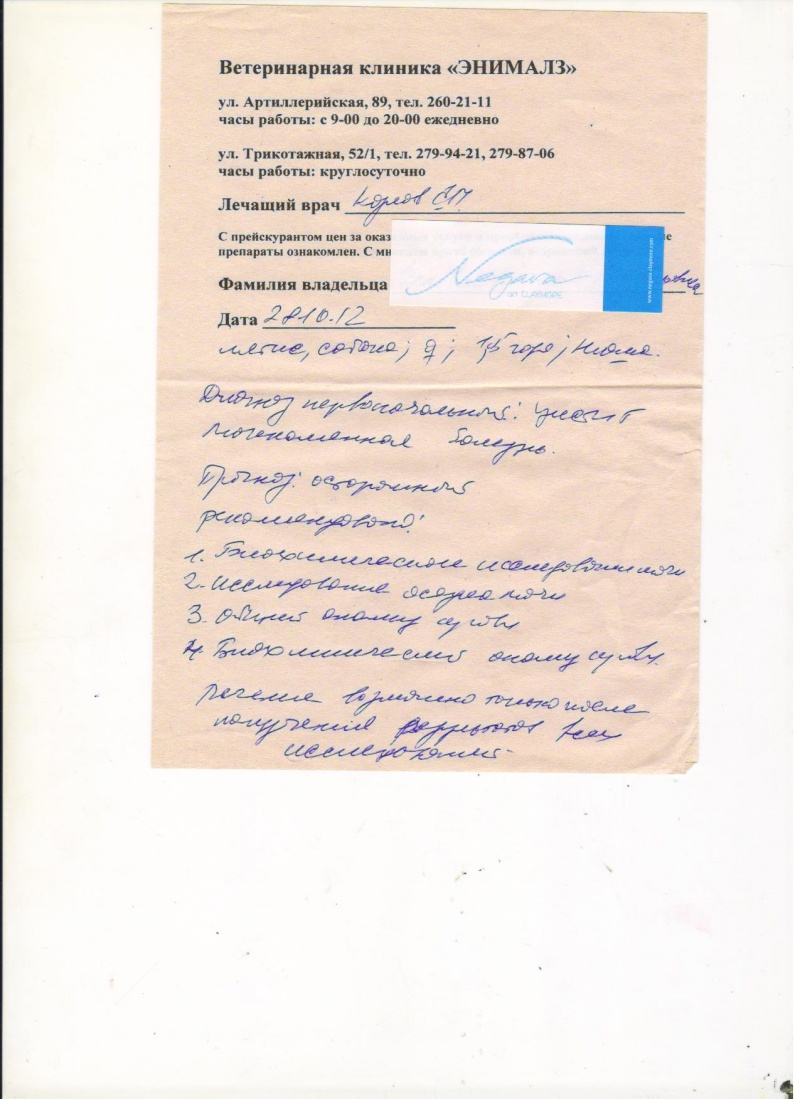 Ветеринарная клиника «ЭНИМАЛЗ»
ул. Артиллерийская, 89, тел. 260-21-11
часы работы: с 9-00 до 20-00 ежедневно
ул. Трикотажная, 52/1, тел. 279-94-21, 279-87-06
часы работы: круглосуточно
Лечащий врач
С прейскурантом цен за оказ
препараты ознакомлен. С
Фамилия владельца
Negara
on CLAPHONE
Дата 28.10.12
метис, собака; ♀;
Диагноз первоначальный: цистит
мочекаменная болезнь.
Прогноз: осторожный
рекомендовано:
1. Биохимическое исследование мочи
2. Исследование осадка мочи
3. Общий анализ крови
4. Биохимический анализ крови.
Лечение возможно только после
получения результатов всех
исследований